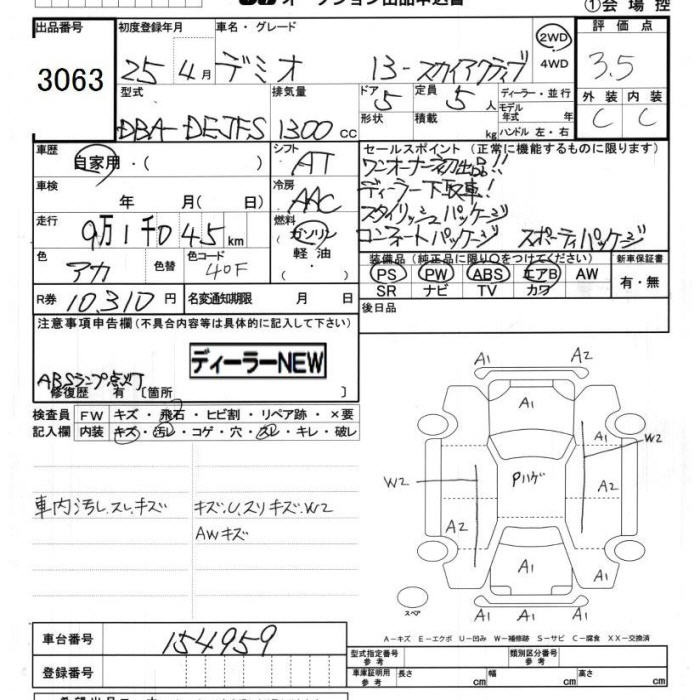 オークション出品申込書 ①会場控
出品番号 初度登録年月 車名・グレード 評価点
3063 25年 4月 デミオ 13-スカイアクティブ 2WD 4WD 3.5
型式 排気量 ドア 定員 ディーラー・並行 外装 内装
DBA-DEJFS 1300cc 5 5人 モデル年式 年 C C
形状 積載 kg ハンドル 左・右
車歴 自家用・( ) シフト AT セールスポイント (正常に機能するものに限ります)
ワンオーナー初出品!!
車検 年 月( 日) 冷房 AAC ディーラー下取車!
スタイリッシュパッケージ
走行 9万1千045km 燃料 ガソリン 軽油 コンフォートパッケージ スポーティパッケージ
色 アカ 色替 色コード 40F 装備品 (純正品に限り○をつけてください) 新車保証書
PS PW ABS エアB AW 有・無
SR ナビ TV カワ
R券 10,310円 名変通知期限 月 日 後日品
注意事項申告欄 (不具合内容等は具体的に記入して下さい)
ディーラーNEW
ABSランプ点灯
修復歴 有 〔箇所 〕
検査員 FW キズ・飛石・ヒビ割・リペア跡・×要
記入欄 内装 キズ・汚レ・コゲ・穴・スレ・キレ・破レ
車内汚レ.スレ.キズ キズ.U.スリキズ.W2
AWキズ
A1 A2
A1
A1 W2
W2 Pハゲ A2
A2
A1 A1
A1 A1 A1
スペア
A-キズ E-エクボ U-凹み W-補修跡 S-サビ C-腐食 XX-交換済
車台番号 154959 型式指定番号 参考 類別区分番号 参考
登録番号 車庫証明用 参考 長さ cm 幅 cm 高さ cm